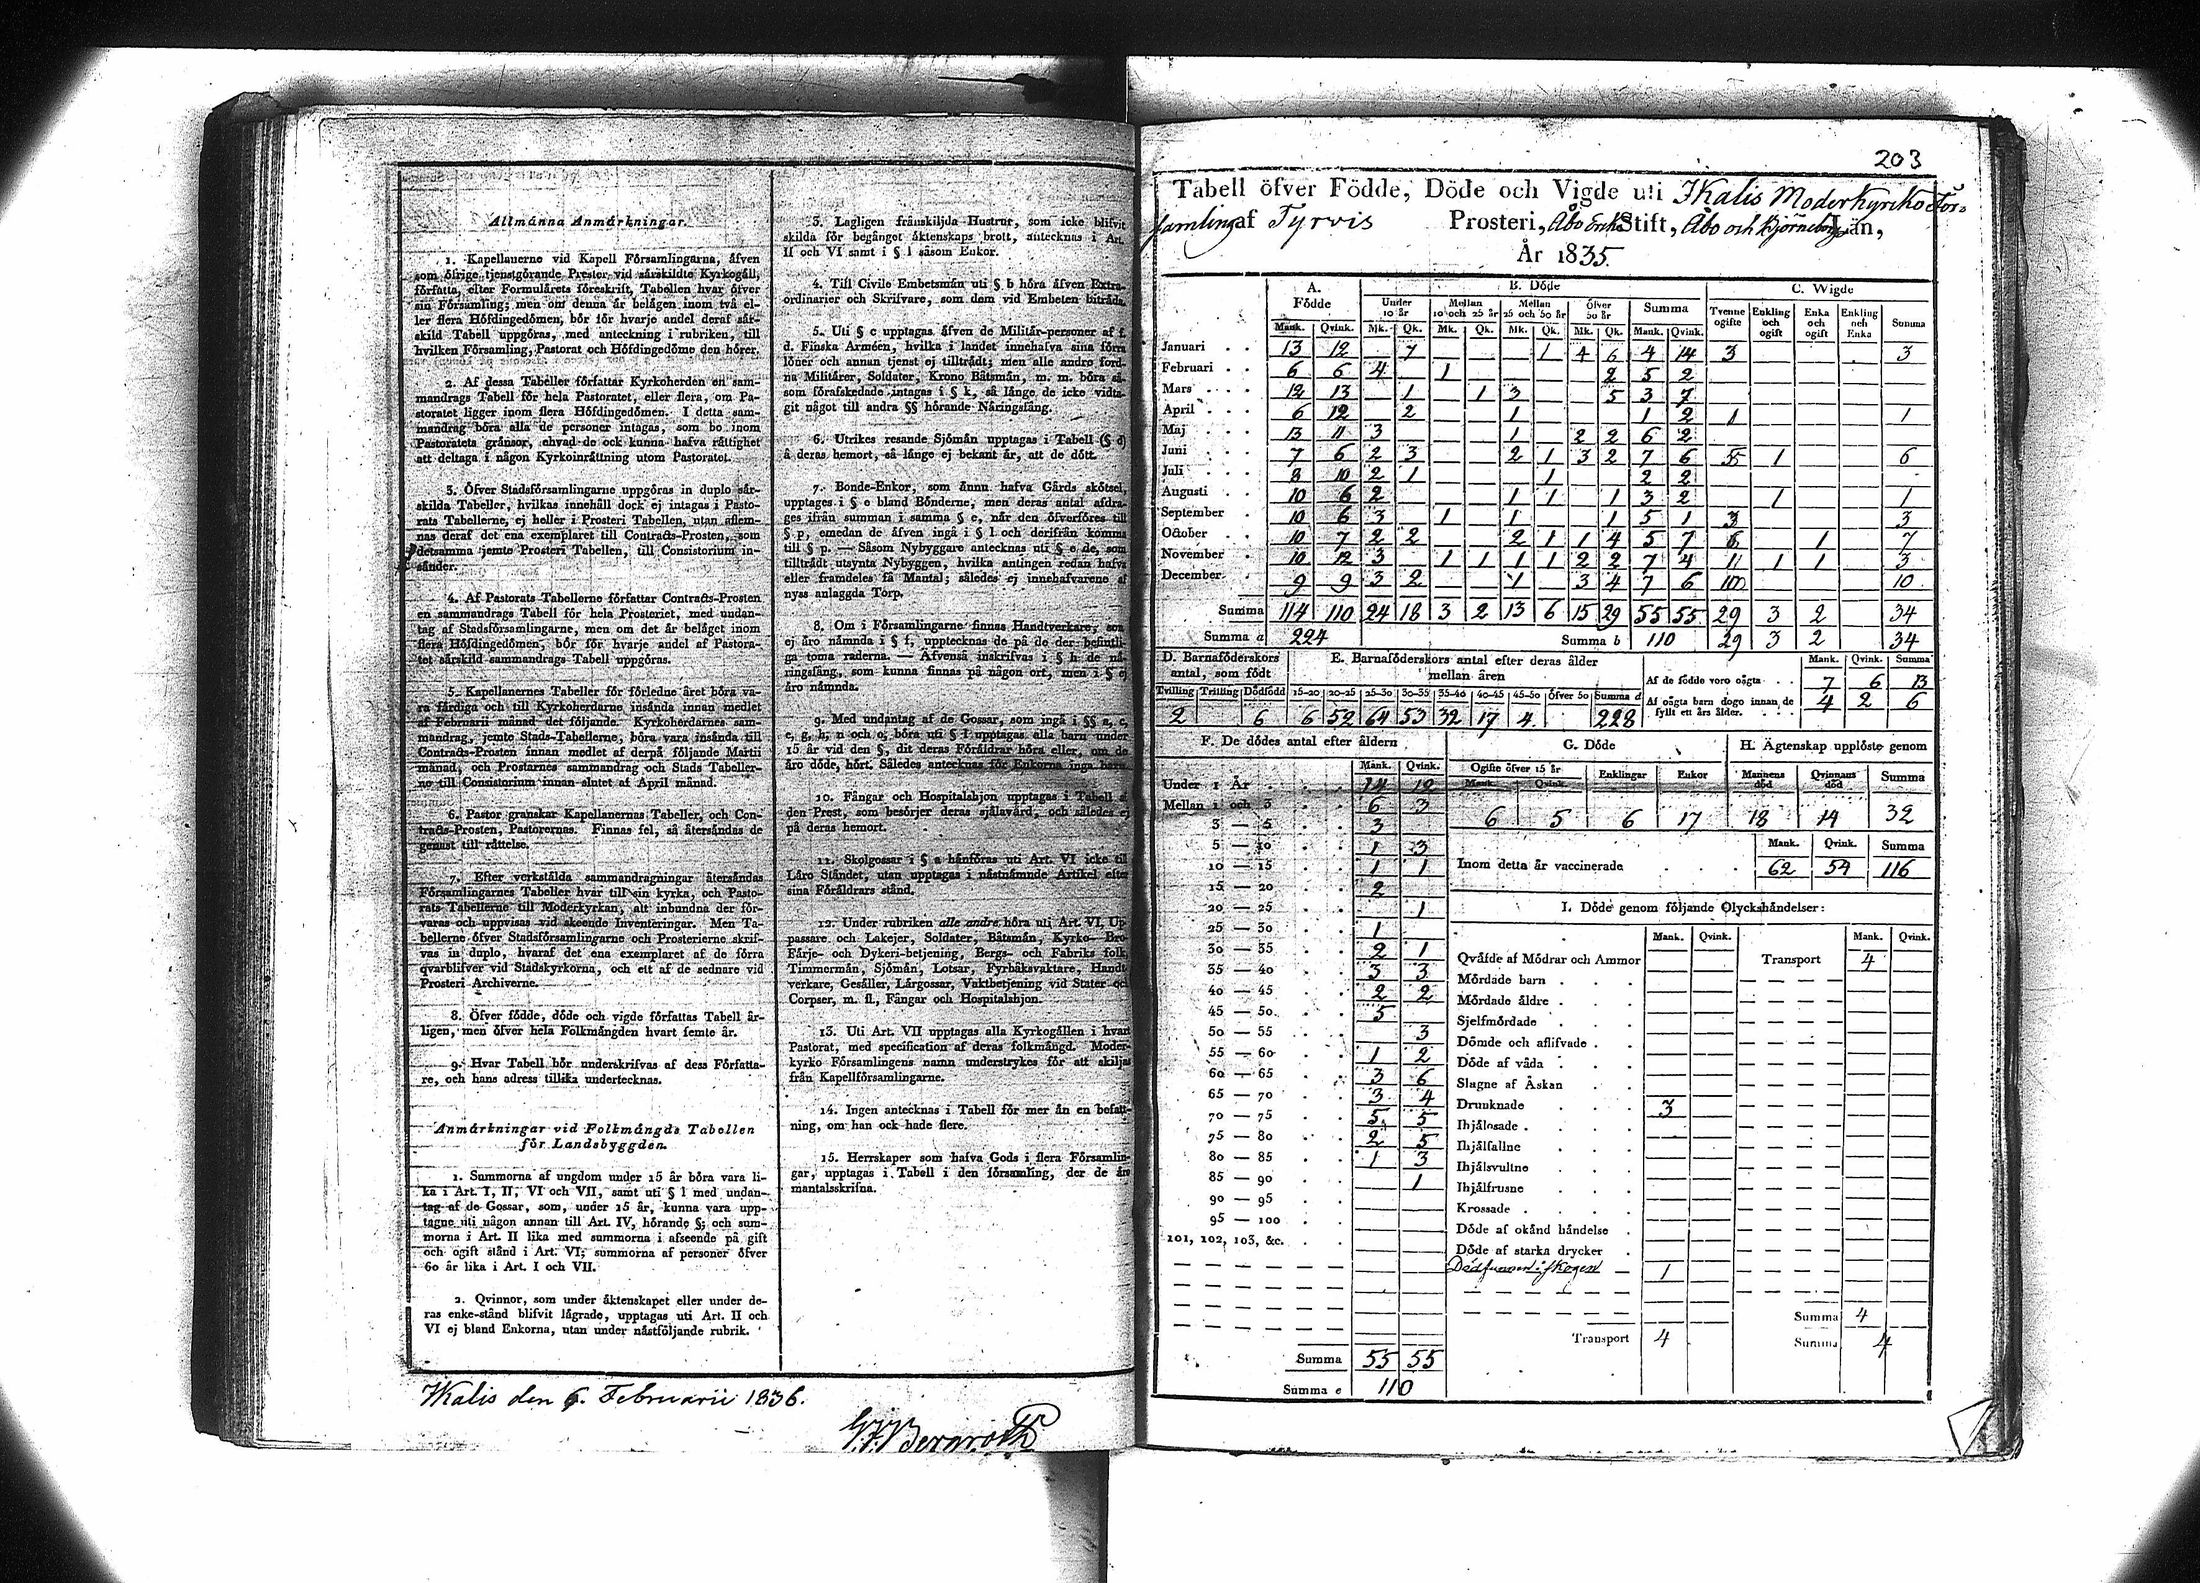 Allmänna Anmärkningar.
1. Kapellanerne vid Kapell Församlingarna, äfven
som öfrige tjenstgörande Prester vid särskildte Kyrkogäll,
författa, efter Formulärets föreskrift, Tabellen hvar öfver
sin Församling; men om denna är belägen inom två el-
ler flera Höfdingedömen, bör för hvarje andel deraf sär-
skild Tabell uppgöras, med anteckning i rubriken, till
hvilken Församling, Pastorat och Höfdingedöme den hörer.
2. Af dessa Tabeller författar Kyrkoherden en sam-
mandrags Tabell för hela Pastoratet, eller flera, om Pa-
storatet ligger inom flera Höfdingedömen. I detta sam-
mandrag böra alla de personer intagas, som bo inom
Pastoratets gränsor, ehvad de ock kunna hafva rättighet
att deltaga i någon Kyrkoinrättning utom Pastoratet.
3. Öfver Stadsförsamlingarne uppgöras in duplo sär-
skilda Tabeller, hvilkas innehåll dock ej intagas i Pasto-
rats Tabellerne, ej heller i Prosteri Tabellen, utan aflem-
nas deraf det ena exemplaret till Contracts-Prosten, som
detsamma jemte Prosteri Tabellen, till Consistorium in-
sänder.
4. Af Pastorats Tabellerne författar Contracts-Prosten
en sammandrags Tabell för hela Prosteriet, med undan-
tag af Stadsförsamlingarne, men om det är beläget inom
flera Höfdingedömen, bör för hvarje andel af Pastora-
tet särskild sammandrags Tabell uppgöras.
5. Kapellanernes Tabeller för förledne året böra va-
ra färdiga och till Kyrkoherdarne insända innan medlet
af Februarii månad det följande. Kyrkoherdarnes sam-
mandrag, jemte Stads-Tabellerne, böra vara insända till
Contracts-Prosten innan medlet af derpå följande Martii
månad, och Prostarnes sammandrag och Stads Tabeller-
ne till Consistorium innan slutet af April månad.
6. Pastor granskar Kapellanernas Tabeller, och Con-
tracts-Prosten, Pastorernas. Finnas fel, så återsändas de
genast till rättelse.
7. Efter verkställda sammandragningar återsändas
Församlingarnes Tabeller hvar till sin kyrka, och Pasto-
rats Tabellerne till Moderkyrkan, att inbundna der för-
varas och uppvisas vid skeende Inventeringar. Men Ta-
bellerne öfver Stadsförsamlingarne och Prosterierne skrif-
vas in duplo, hvaraf det ena exemplaret af de förra
qvarblifver vid Stadskyrkorna, och ett af de sednare vid
Prosteri Archiverne.
8. Öfver födde, döde och vigde författas Tabell år-
ligen, men öfver hela Folkmängden hvart femte år.
9. Hvar Tabell bör underskrifvas af dess Författa-
re, och hans adress tillika undertecknas.
Anmärkningar vid Folkmängds Tabellen
för Landsbyggden.
1. Summorna af ungdom under 15 år böra vara li-
ka i Art. I, II, VI och VII, samt uti § l med undan-
tag af de Gossar, som, under 15 år, kunna vara upp-
tagne uti någon annan till Art. IV, hörande §; och sum-
morna i Art. II lika med summorna i afseende på gift
och ogift stånd i Art. VI; summorna af personer öfver
60 år lika i Art. I och VII.
2. Qvinnor, som under äktenskapet eller under de-
ras enke-stånd blifvit lägrade, upptagas uti Art. II och
VI ej bland Enkorna, utan under nästföljande rubrik.
3. Lagligen frånskiljda Hustrur, som icke blifvit
skilda för begånget äktenskaps brott, antecknas i Art.
II och VI samt i § l såsom Enkor.
4. Till Civile Embetsmän uti § b höra äfven Extra-
ordinarier och Skrifvare, som dem vid Embeten biträda.
5. Uti § c upptagas äfven de Militär-personer af f.
d. Finska Arméen, hvilka i landet innehafva sina förra
löner och annan tjenst ej tillträdt; men alle andre ford-
na Militärer, Soldater, Krono Båtsmän, m. m. böra så-
som förafskedade intagas i § k, så länge de icke vidta-
git något till andra §§ hörande Näringsfång.
6. Utrikes resande Sjömän upptagas i Tabell (§ d)
å deras hemort, så länge ej bekant är, att de dött.
7. Bonde-Enkor, som ännu hafva Gårds skötsel,
upptages i § e bland Bönderne, men deras antal afdra-
ges ifrån summan i samma § e, när den öfverföres till
§ p, emedan de äfven ingå i § l och derifrån komma
till § p. — Såsom Nybyggare antecknas uti § e de, som
tillträdt utsynta Nybyggen, hvilka antingen redan hafva
eller framdeles få Mantal; således ej innehafvarene af
nyss anlaggda Torp.
8. Om i Församlingarne finnas Handtverkare, som
ej äro nämnda i § f, upptecknas de på de der befintli-
ga toma raderna. — Äfvenså inskrifvas i § h de nä-
ringsfång, som kunna finnas på någon ort, men i § ej
äro nämnda.
9. Med undantag af de Gossar, som ingå i §§ a, c,
e, g, h, n och o, böra uti § l upptagas alla barn under
15 år vid den §, dit deras Föräldrar höra eller, om de
äro döde, hört. Således antecknas för Enkorna inga barn.
10. Fångar och Hospitalshjon upptagas i Tabell af
den Prest, som besörjer deras själavård, och således ej
på deras hemort.
11. Skolgossar i § a hänföras uti Art. VI icke til
Läro Ståndet, utan upptagas i nästnämnde Artikel efter
sina Föräldrars stånd.
12. Under rubriken alle andre höra uti Art. VI, Up
passare och Lakejer, Soldater, Båtsmän, Kyrko- Bro-
Färje- och Dykeri-betjening, Bergs- och Fabriks folk,
Timmermän, Sjömän, Lotsar, Fyrbåksvaktare, Handt
verkare, Gesäller, Lärgossar, Vaktbetjening vid Stater och
Corpser, m. fl., Fångar och Hospitalshjon.
13. Uti Art. VII upptagas alla Kyrkogällen i hvart
Pastorat, med specification af deras folkmängd. Moder-
kyrko Församlingens namn understrykes för att skiljas
från Kapellförsamlingarne.
14. Ingen antecknas i Tabell för mer än en befatt-
ning, om han ock hade flere.
15. Herrskaper som hafva Gods i flera Församlin-
gar, upptagas i Tabell i den församling, der de äro
mantalsskrifna.
Ikalis den 6. Februarii 1836.
203
Tabell öfver Födde, Döde och Vigde uti Ikalis Moderkyrko För-
samling af Tyrvis Prosteri, Åbo Erke Stift, Åbo och Björneborgs Län,
År 1835.
A. Födde B. Döde C. Wigde
Under 10 år Mellan 10 och 25 år Mellan 25 och 50 år Öfver 50 år Summa Tvenne ogifte Enkling och ogift Enka och ogift Enkling och Enka Summa
Mank. Qvink. Mk. Qk. Mk. Qk. Mk. Qk. Mk. Qk. Mank. Qvink.
Januari 13 12 7 1 4 6 4 14 3 3
Februari 6 6 4 1 2 5 2
Mars 12 13 1 1 3 5 3 7
April 6 12 2 1 1 2 1 1
Maj 13 11 3 1 2 2 6 2
Juni 7 6 2 3 2 1 3 2 7 6 5 1 6
Juli 8 10 2 1 1 2 2
Augusti 10 6 2 1 1 1 3 2 1 1
September 10 6 3 1 1 1 5 1 3 3
October 10 7 2 2 2 1 1 4 5 7 6 1 7
November 10 12 3 1 1 1 1 2 2 7 4 1 1 1 3
December 9 9 3 2 1 3 4 7 6 10 10
Summa 114 110 24 18 3 2 13 6 15 29 55 55 29 3 2 34
Summa a 224 Summa b 110 29 3 2 34
D. Barnaföderskors antal, som födt
Tvilling Trilling Dödfödd
2 6
E. Barnaföderskors antal efter deras ålder mellan åren
15-20 20-25 25-30 30-35 35-40 40-45 45-50 öfver 50 Summa d
6 52 64 53 32 17 4 228
Mank. Qvink. Summa
Af de födde voro oägta 7 6 13
Af oägta barn dogo innan de fyllt ett års ålder. 4 2 6
F. De dödes antal efter åldern
Mank. Qvink.
Under 1 År 14 12
Mellan 1 och 3 6 3
3 — 5 3
5 — 10 1 3
10 — 15 1 1
15 — 20 2
20 — 25 1
25 — 30 1
30 — 35 2 1
35 — 40 3 3
40 — 45 2 2
45 — 50 5
50 — 55 3
55 — 60 1 2
60 — 65 3 6
65 — 70 3 4
70 — 75 5 5
75 — 80 2 5
80 — 85 1 3
85 — 90 1
90 — 95
95 — 100
101, 102, 103, &c.
Summa 55 55
Summa e 110
G. Döde
Ogifte öfver 15 år Enklingar Enkor
Mank. Qvink.
6 5 6 17
H. Ägtenskap upplöste genom
Mannens död Qvinnans död Summa
18 14 32
Mank. Qvink. Summa
Inom detta år vaccinerade 62 54 116
I. Döde genom följande Olyckshändelser:
Mank. Qvink. Mank. Qvink.
Qväfde af Mödrar och Ammor Transport 4
Mördade barn
Mördade äldre
Sjelfmördade
Dömde och aflifvade
Döde af våda
Slagne af Åskan
Drunknade 3
Ihjälosade
Ihjälfallne
Ihjälsvultne
Ihjälfrusne
Krossade
Döde af okänd händelse
Döde af starka drycker
Död funnen i skogen 1
Summa 4
Transport 4 Summa 4